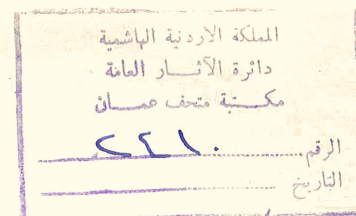 المملكة الاردنية الهاشمية
دائرة الآثـــار العامة
مكـــتبة متحف عمـــان
الرقم ٢٤١٠
التاريخ